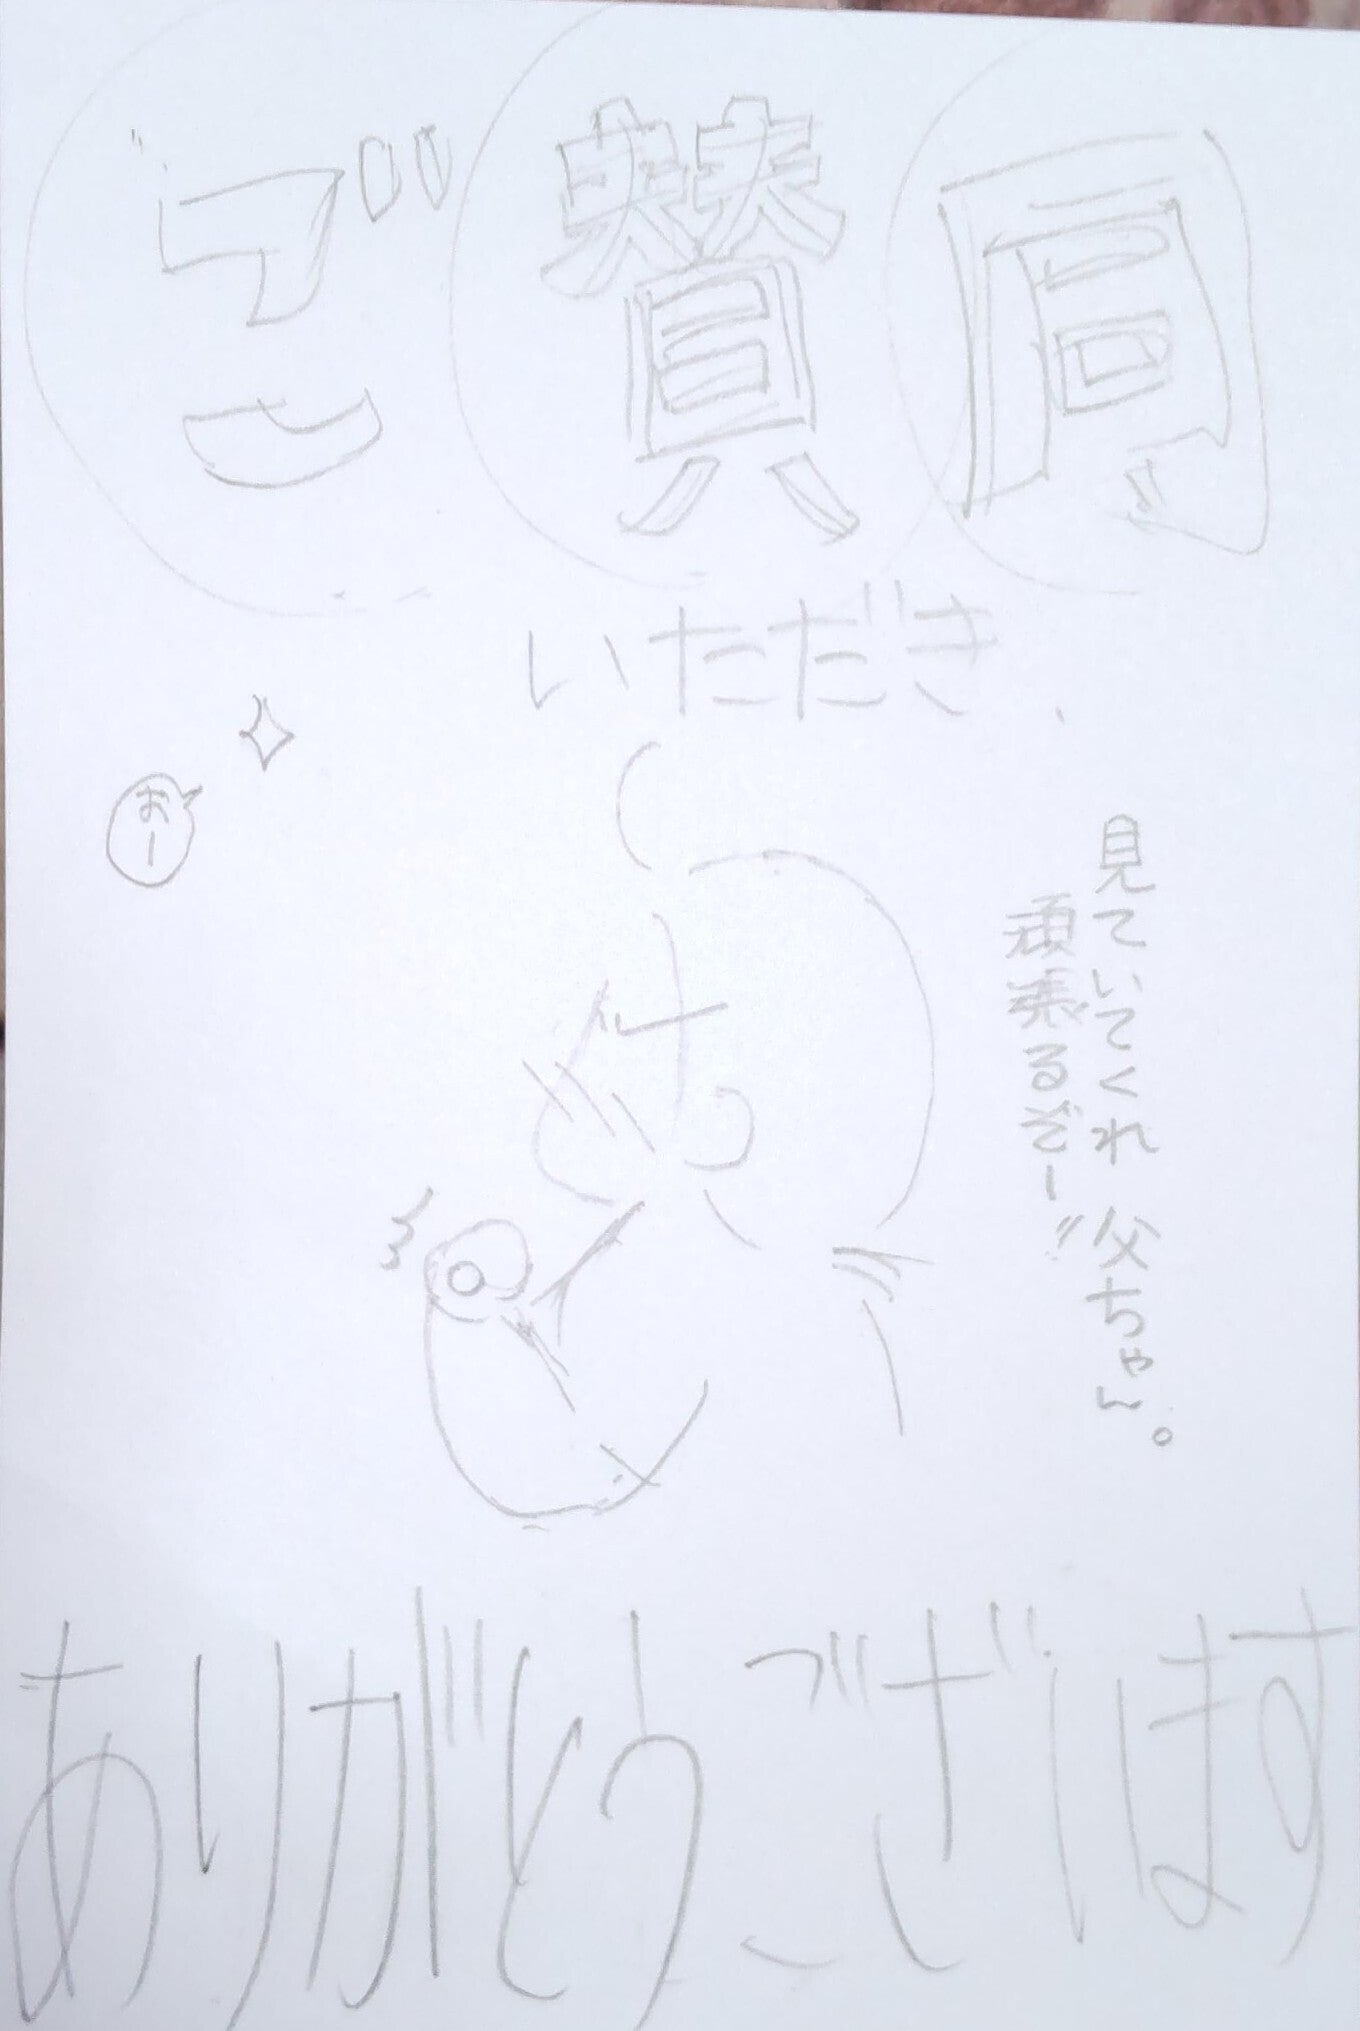 ご賛同
いただき
おー
見ていてくれ父ちゃん。
頑張るぞー"
ありがとうございます